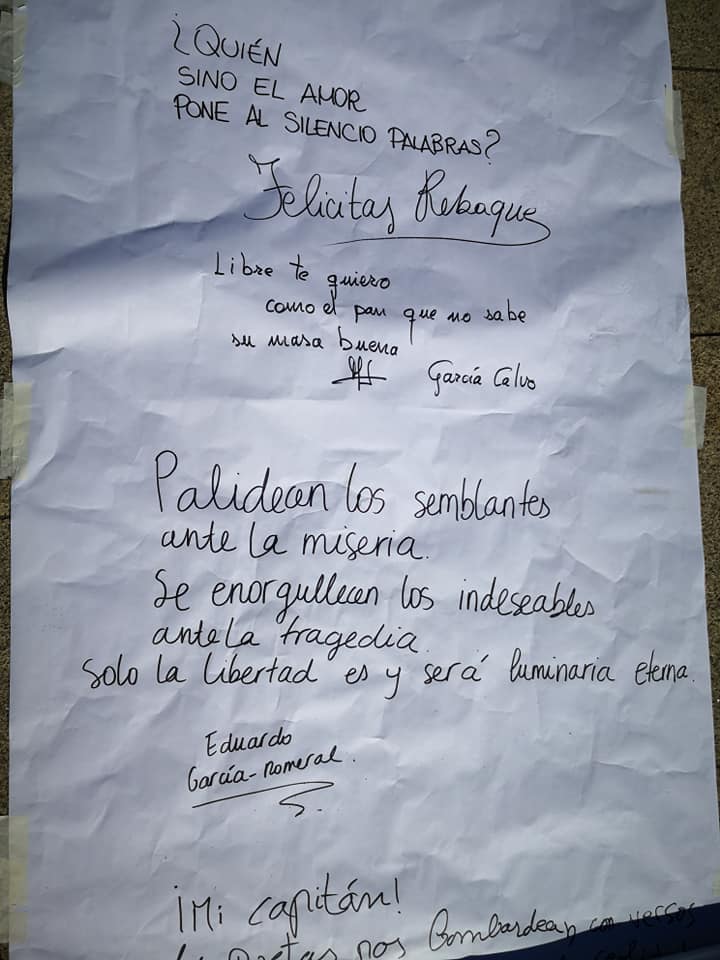 ¿QUIÉN
SINO EL AMOR
PONE AL SILENCIO PALABRAS?
Felicitas Rebaque
Libre te quiero
como el pan que no sabe
su masa buena
García Calvo
Palidecen los semblantes
ante la miseria.
Se enorgullecen los indeseables
ante la tragedia.
Solo la libertad es y será luminaria eterna.
Eduardo
García-Romeral.
¡Mi capitán!
poetas nos bombardean con versos